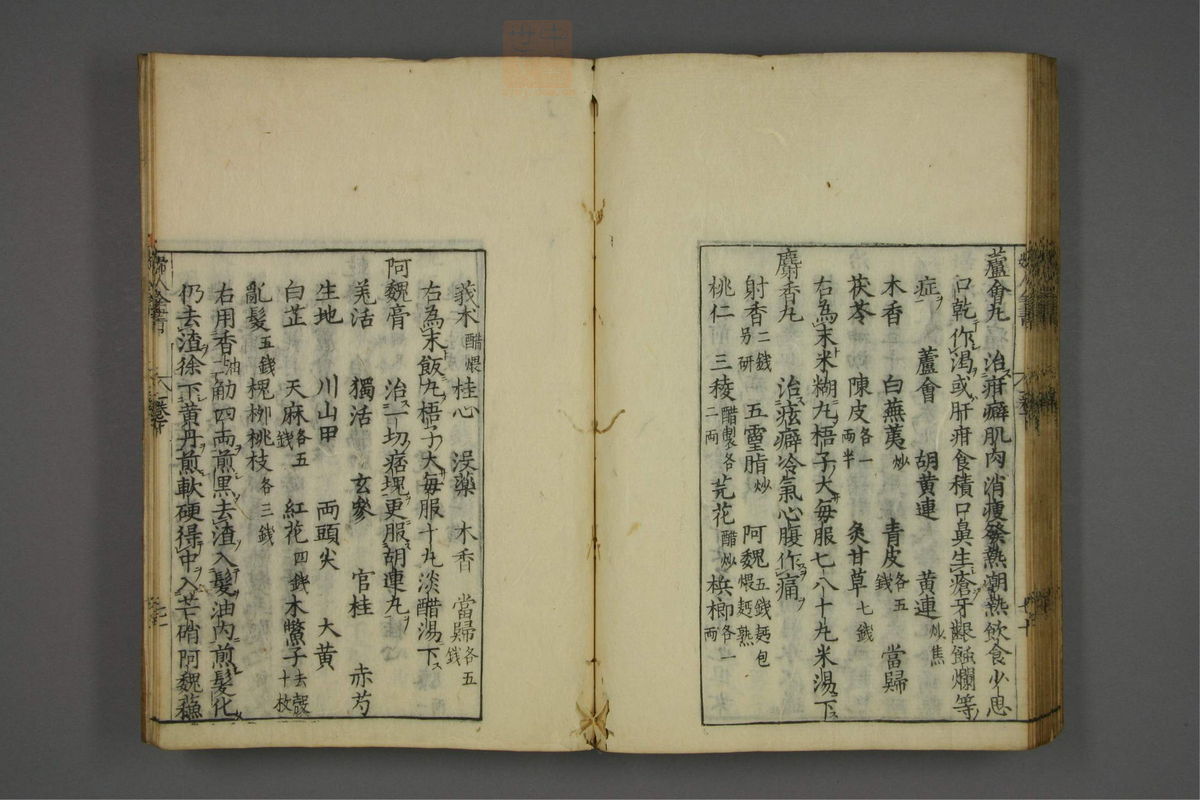 蘆會丸 治疳癖肌肉消瘦發熱潮熱飲食少思
口乾作渴或肝疳食積口鼻生瘡牙齦蝕爛等
症 蘆會 胡黄連 黄連炒焦
木香 白蕪荑炒 青皮各五錢 當歸
茯苓 陳皮各一両半 炙甘草七錢
右為末米糊丸梧子大毎服七八十丸米湯下
麝香丸 治痃癖冷氣心腹作痛
射香二錢另研 五靈脂炒 阿魏五錢麺包煨麺熟
桃仁 三稜醋製各二両 芫花醋炒 梹榔各一両
莪朮醋煨 桂心 没藥 木香 當歸各五錢
右為末飯丸梧子大毎服十丸淡醋湯下
阿魏膏 治一切痞塊更服胡連丸
羌活 獨活 玄參 官桂 赤芍
生地 川山甲 両頭尖 大黄
白芷 天麻各五錢 紅花四錢 木鱉子去殼十枚
亂髮五錢 槐栁桃枝各三錢
右用香油二觔四両煎黒去渣入髮油内煎髮化
仍去渣徐下黄丹煎軟硬得中入芒硝阿魏蘓